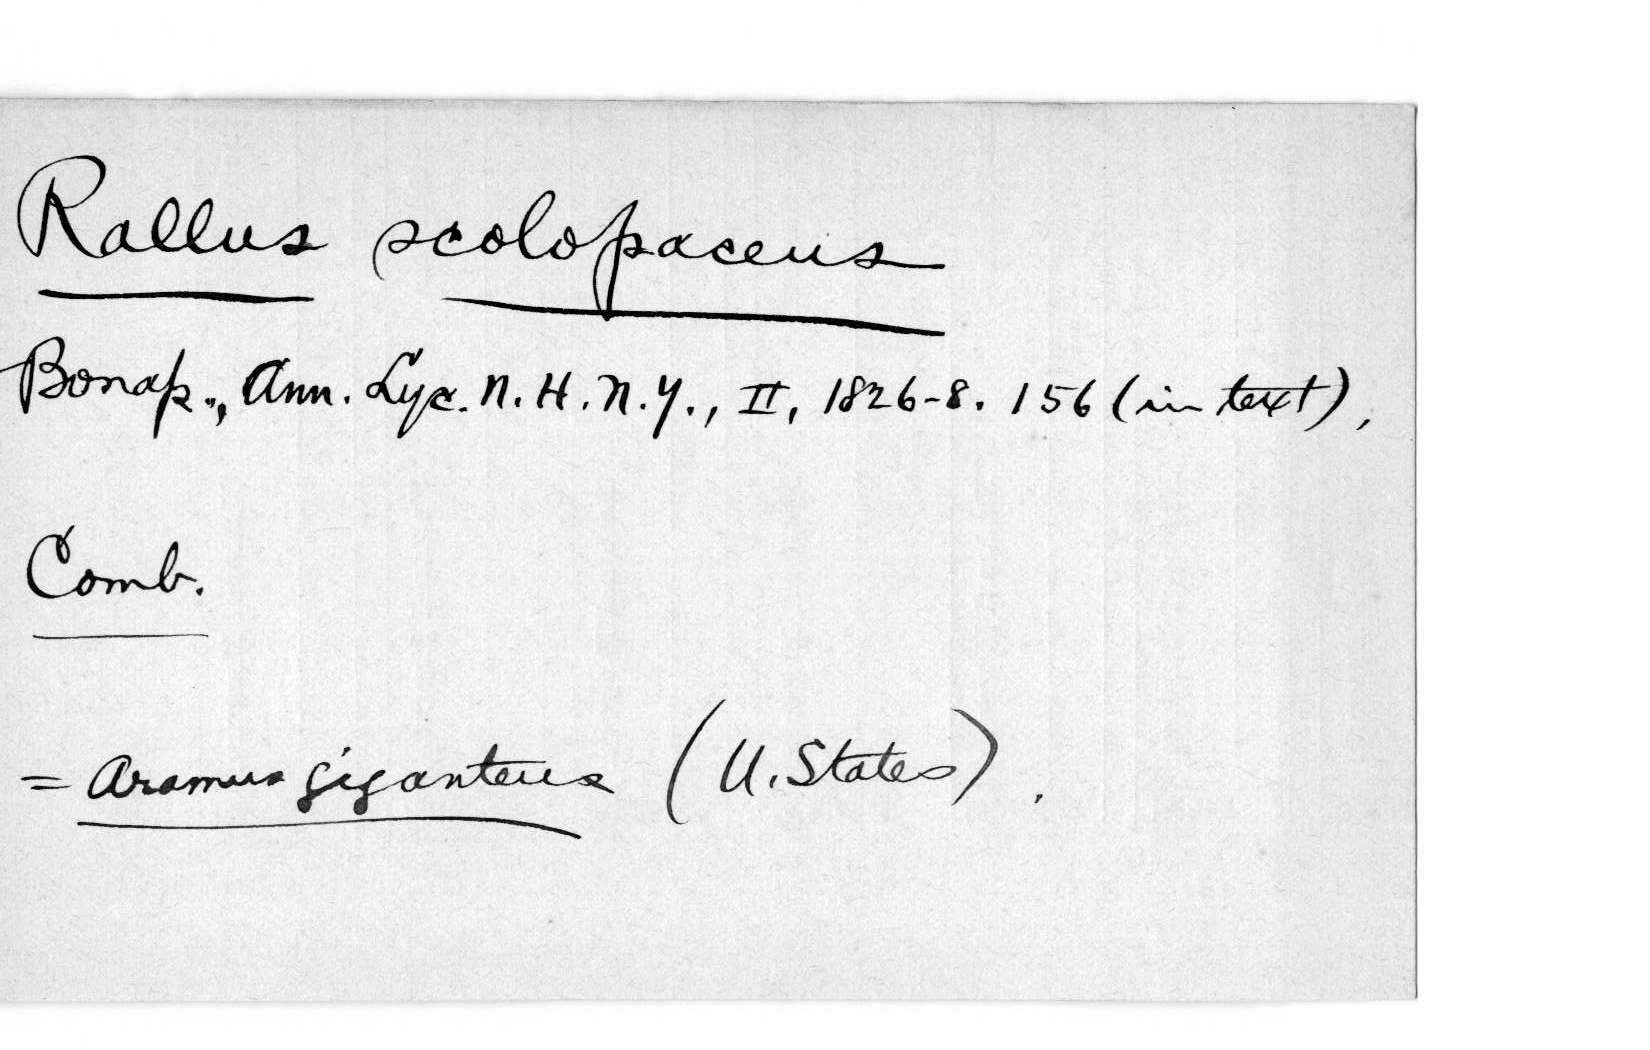 Rallus scolopaceus
Bonap., Ann. Lyc. N. H. N. Y., II, 1826-8. 156 (in text),
Comb.
= Aramus giganteus (U. States).